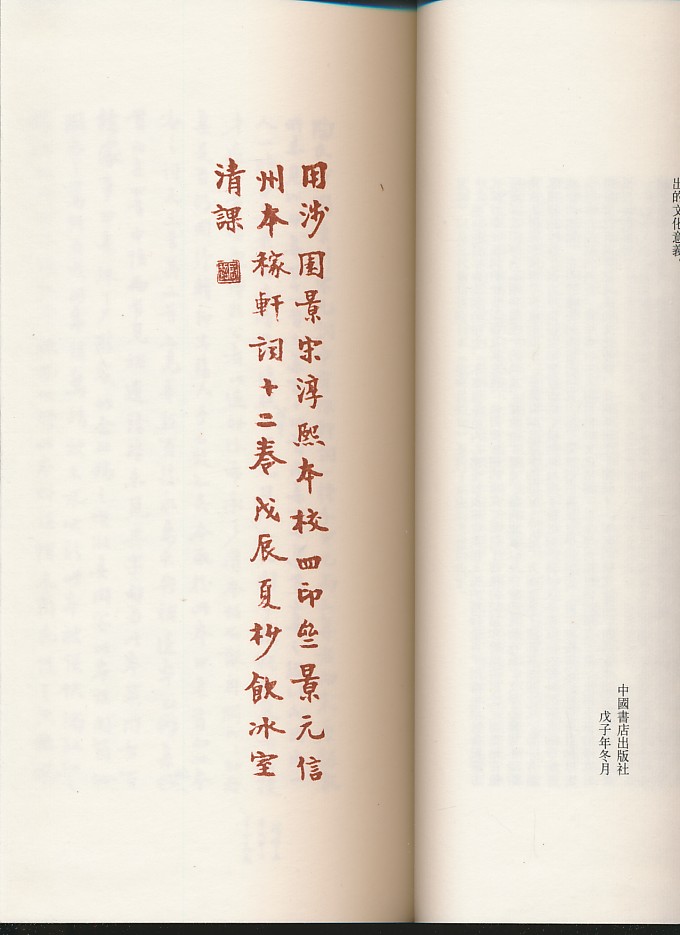 出的文化意義。
中國書店出版社
戊子年冬月
用涉園景宋淳熙本校四印齋景元信
州本稼軒詞十二卷戊辰夏杪飲冰室
清課